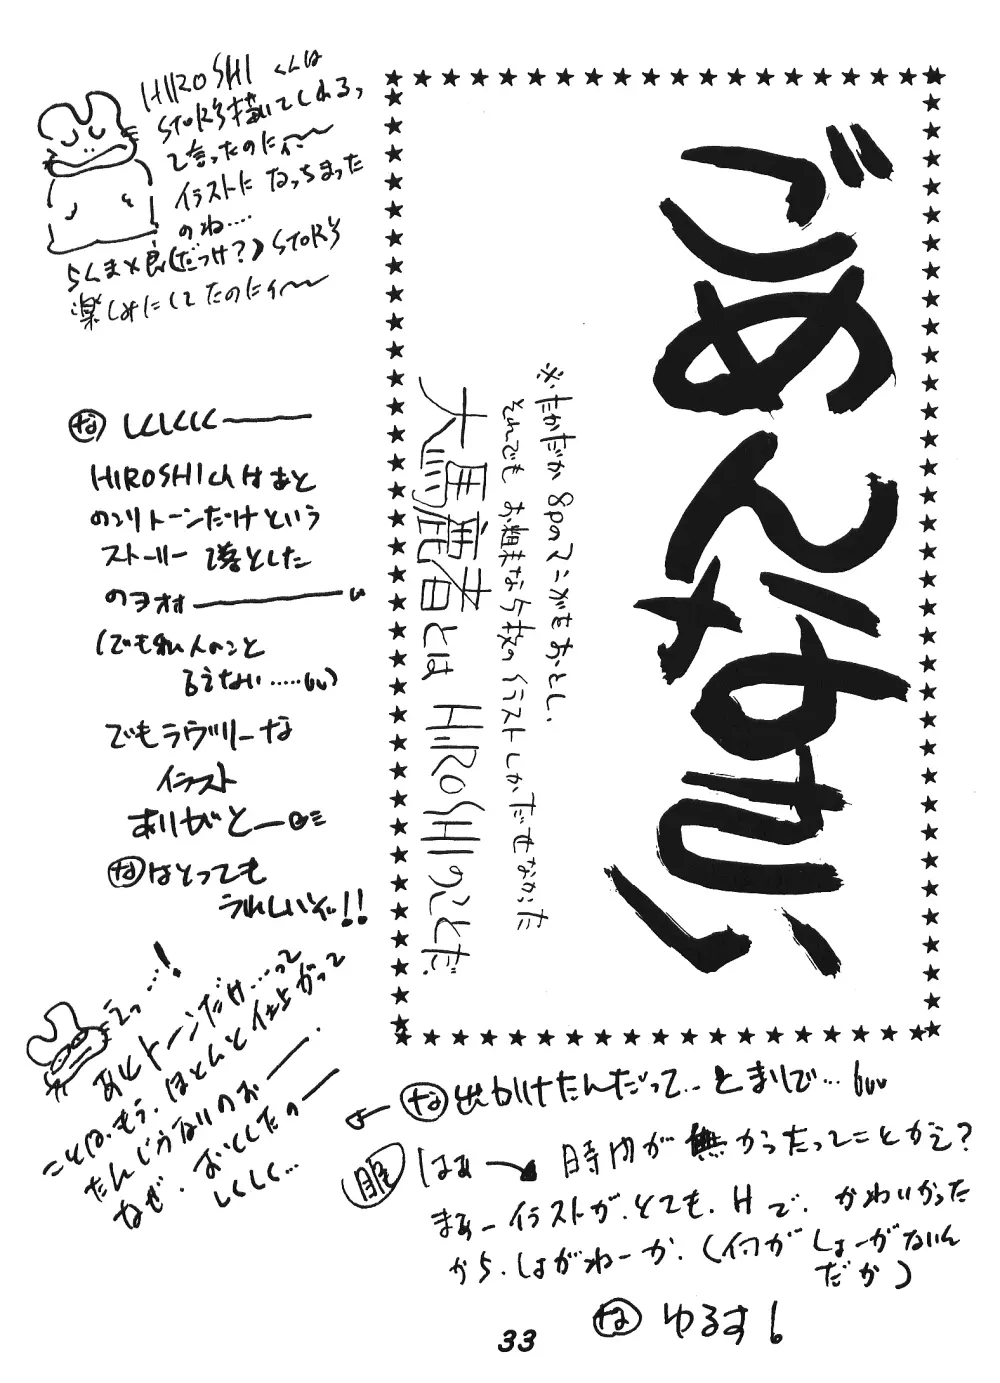 HIROSHIくんは
STORY描いてくれる、
て言ったのにィ〜
イラストに なっちまった
のね……
らんま×良(だっけ?)STORY
楽しみにしてたのにィ〜
ごめんなさい
※たかだか8pのマンガをおとし、
それでも お粗末な5枚のイラストしかだせなかった
大馬鹿者とは HIROSHIのことだ
な しくしくしく――
HIROSHIくんはあと
のこりトーンだけという
ストーリー で落とした
のヲオォ――
(でも私、人のこと
言えない……)
でもラヴリーな
イラスト
ありがと―
なはとっても
うれしいぞ!!
えっ…!
あとトーンだけ…って
ことは、もう、ほとんど仕上がって
たんじゃないのぉ――.
なぜ、おとしたの――
しくしく…
な 出かけたんだって…とまりで…
服 はぁ 時間が無かったってことかえ?
まぁーイラストが、とても、Hで、かわいかった
から、しょがねーか、(何がしょーがないん
だか)
な ゆるす!
33